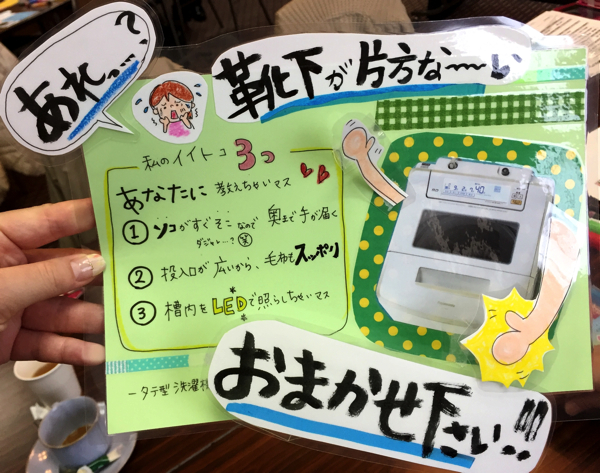 あれっ…?
靴下が片方な〜い
私のイイトコ3つ
あなたに教えちゃいマス
① ソコがすぐそこなので奥まで手が届く
ダジャレ…?
② 投入口が広いから、毛布もスッポリ
③ 槽内をLEDで照らしちゃいマス
ータテ型洗濯機
おまかせ下さい!!!